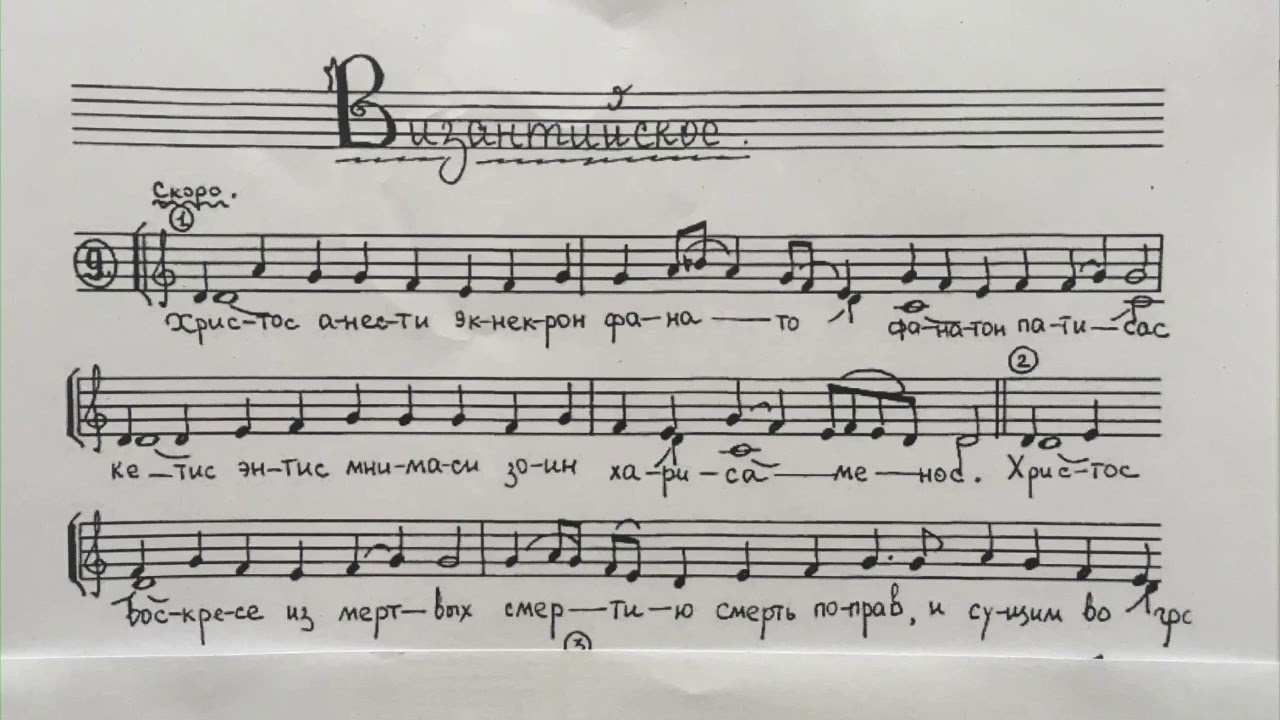 Византийское.
Скоро.
1
9.
Хрис-тос а-нес-ти эк-нек-рон фа-на-то фа-на-тон па-ти-сас
2
ке-тис эн-тис мни-ма-си зо-ин ха-ри-са-ме-нос. Хрис-тос
вос-кре-се из мерт-вых смер-ти-ю смерть по-прав, и су-щим во гро
3